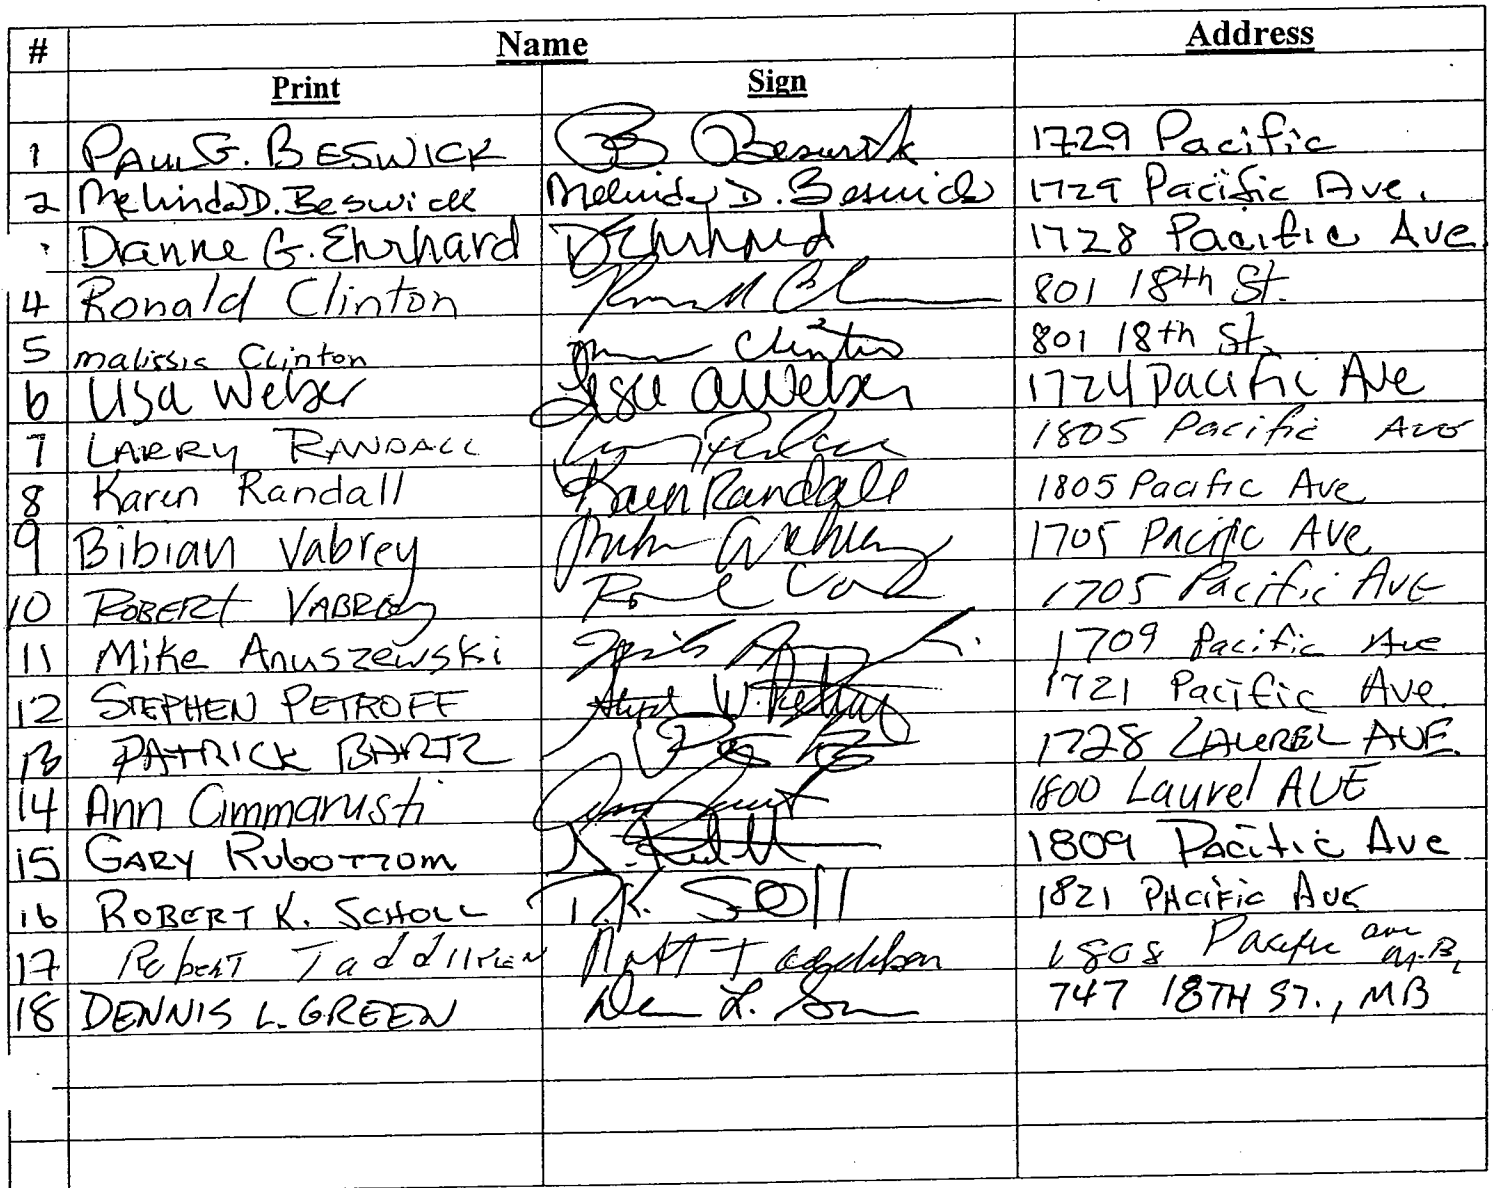 # Name Address
Print Sign
1 PAUL G. BESWICK Beswick 1729 Pacific
2 Melinda D. Beswick Melinda D. Beswick 1729 Pacific Ave.
Dianne G. Ehrhard DEhrhard 1728 Pacific Ave
4 Ronald Clinton 801 18th St.
5 malissia Clinton Clinton 801 18th St.
6 Lisa Weber Lisa A Weber 1724 Pacific Ave
7 LARRY RANDALL 1805 Pacific Ave
8 Karen Randall Karen Randall 1805 Pacific Ave
9 Bibian Vabrey 1705 Pacific Ave
10 ROBERT VABREY 1705 Pacific Ave
11 Mike Anuszewski 1709 Pacific Ave
12 STEPHEN PETROFF W. 1721 Pacific Ave.
13 PATRICK BARTZ 1728 LAUREL AVE.
14 Ann Cimmarusti 1800 Laurel AVE
15 GARY RUBOTTOM 1809 Pacific Ave
16 ROBERT K. SCHOLL R.K. 1821 PAcific Ave
17 Robert 1808 Pacific ave M.B.
18 DENNIS L. GREEN L. 747 18TH ST., MB